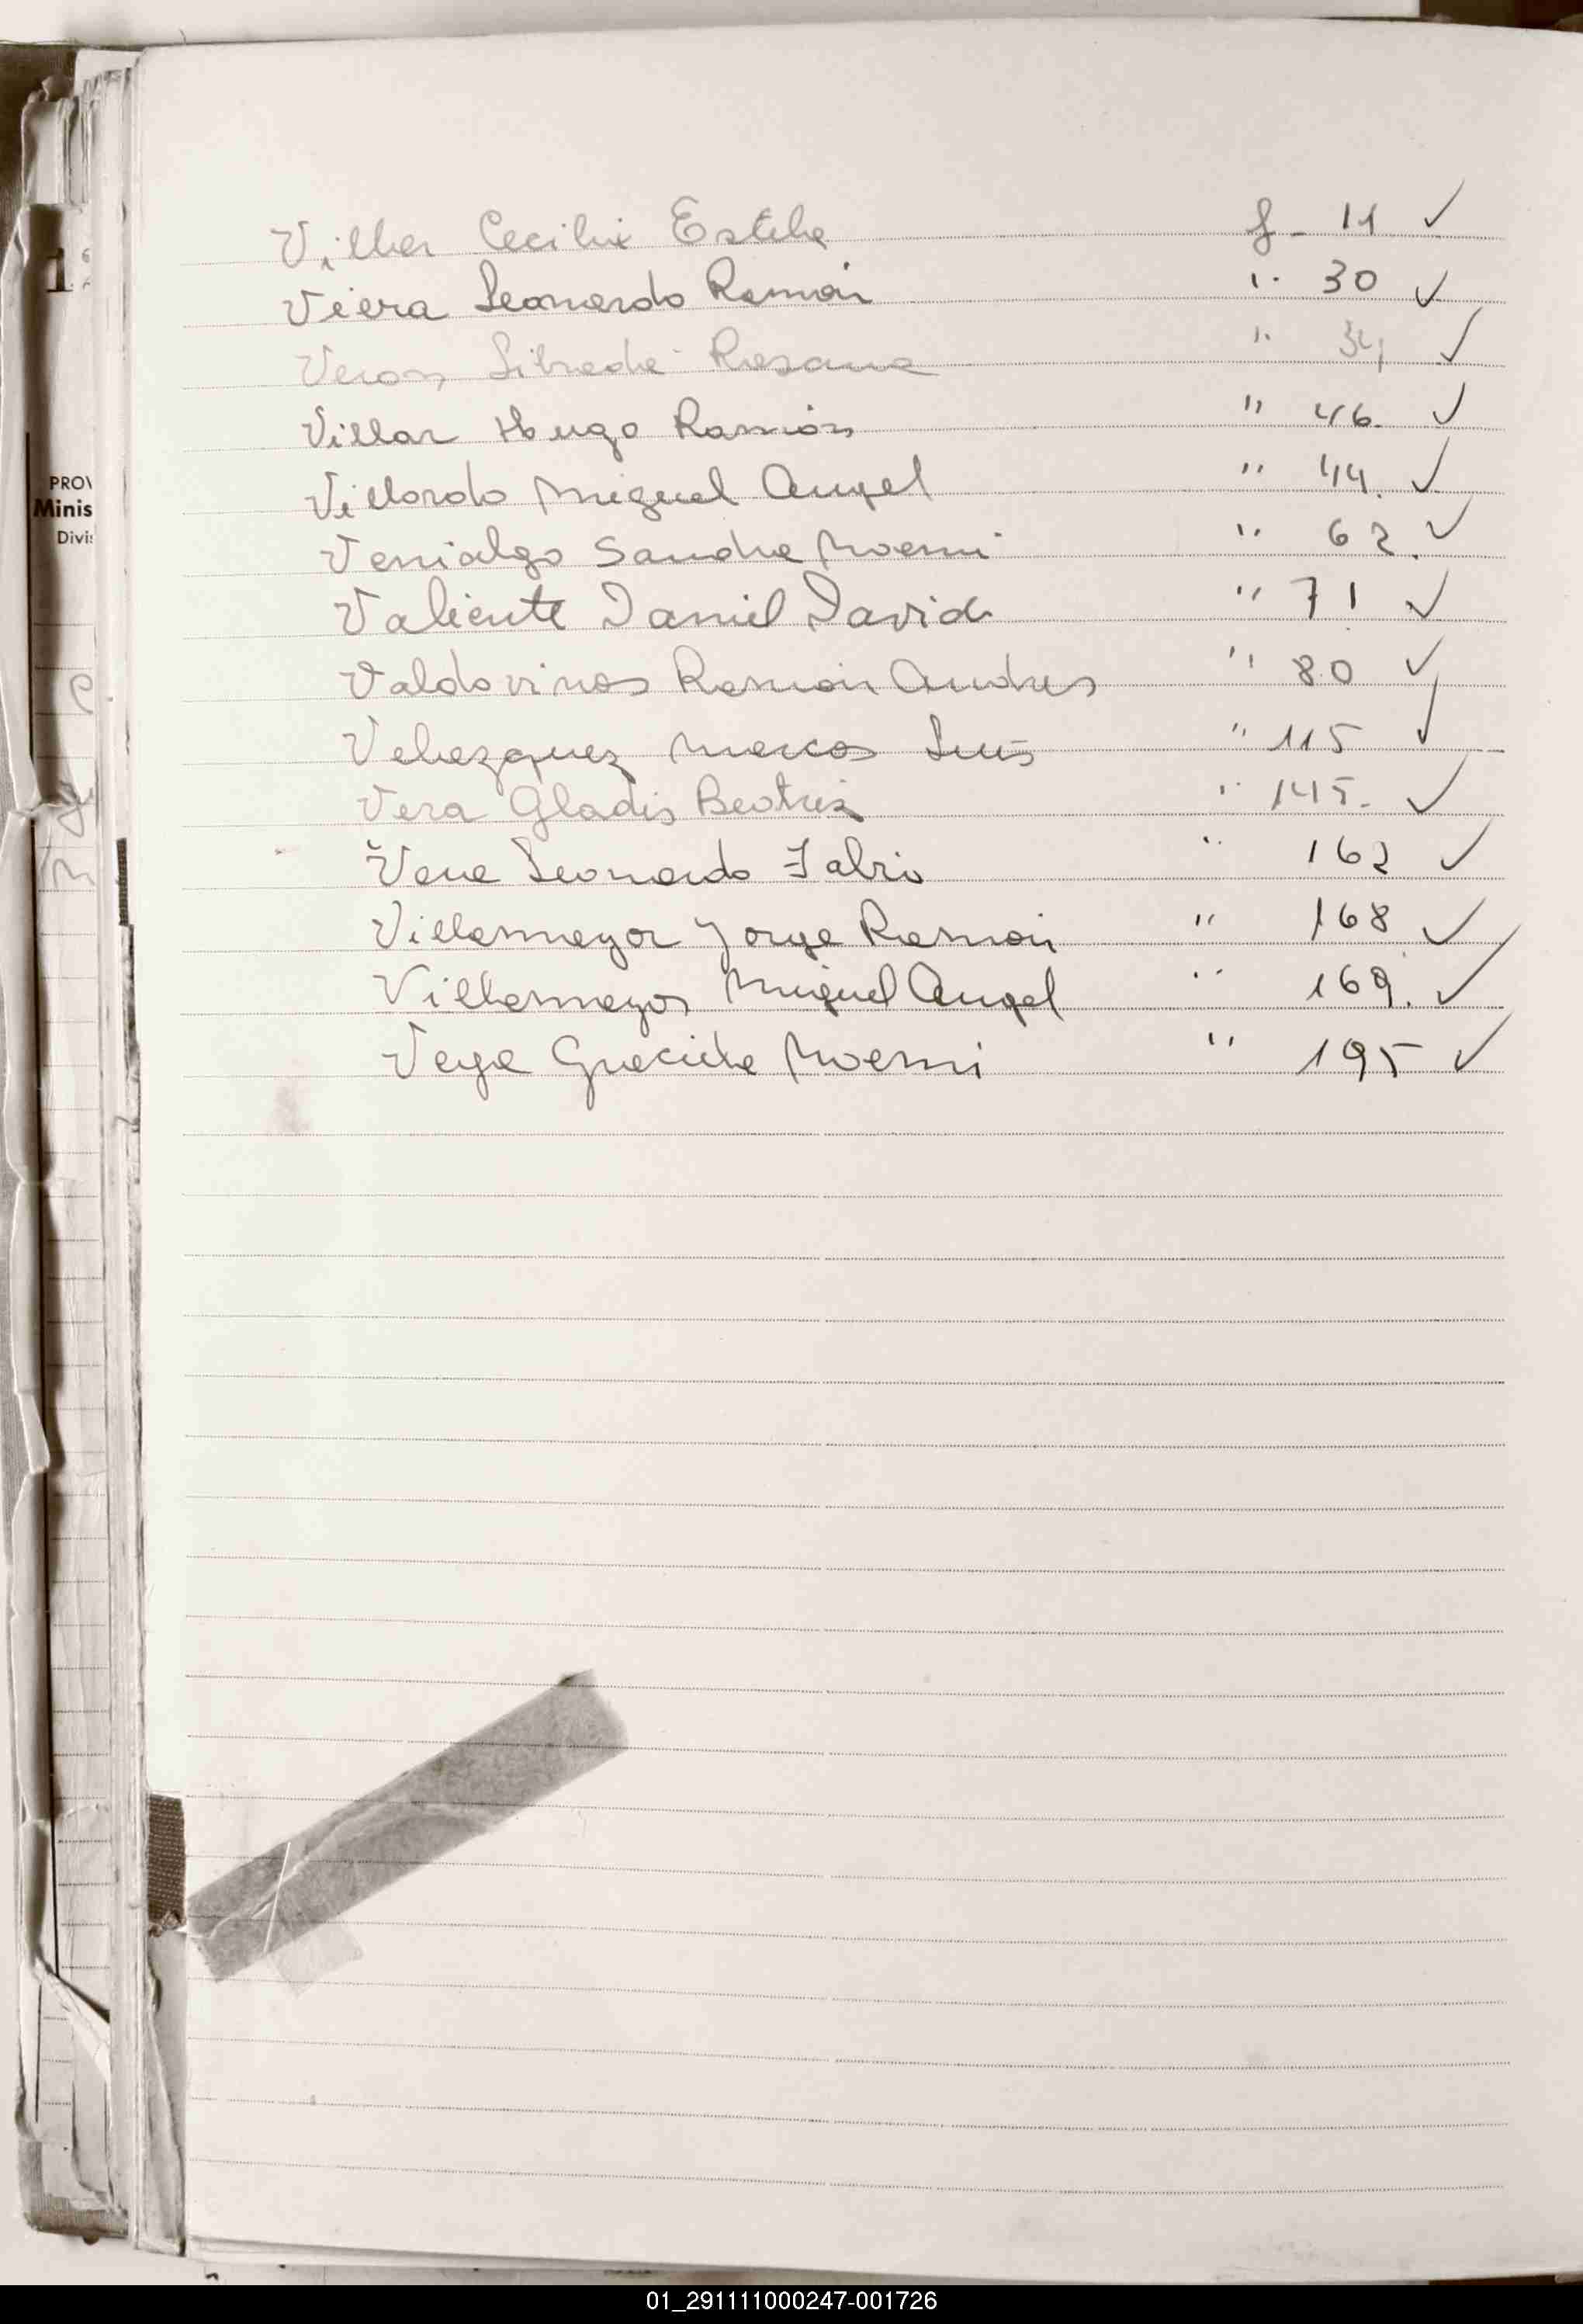 Villar Cecilia Estela f - 11 ✓
Viera Leonardo Ramón " 30 ✓
Veron Librada Rosana " 34 ✓
Villar Hugo Ramón " 46. ✓
Villordo Miguel Angel " 44. ✓
Venialgo Sandra Noemi " 62. ✓
Valiente Daniel David " 71 ✓
Valdovinos Ramón Andres " 80 ✓
Velazquez Marcos Luis " 115 ✓
Vera Gladis Beatriz " 145. ✓
Vera Leonardo Fabio " 162 ✓
Villamayor Jorge Ramón " 168 ✓
Villamayor Miguel Angel " 169. ✓
Vega Graciela Noemi " 195 ✓
PROV
Minis
Divi
01_291111000247-001726